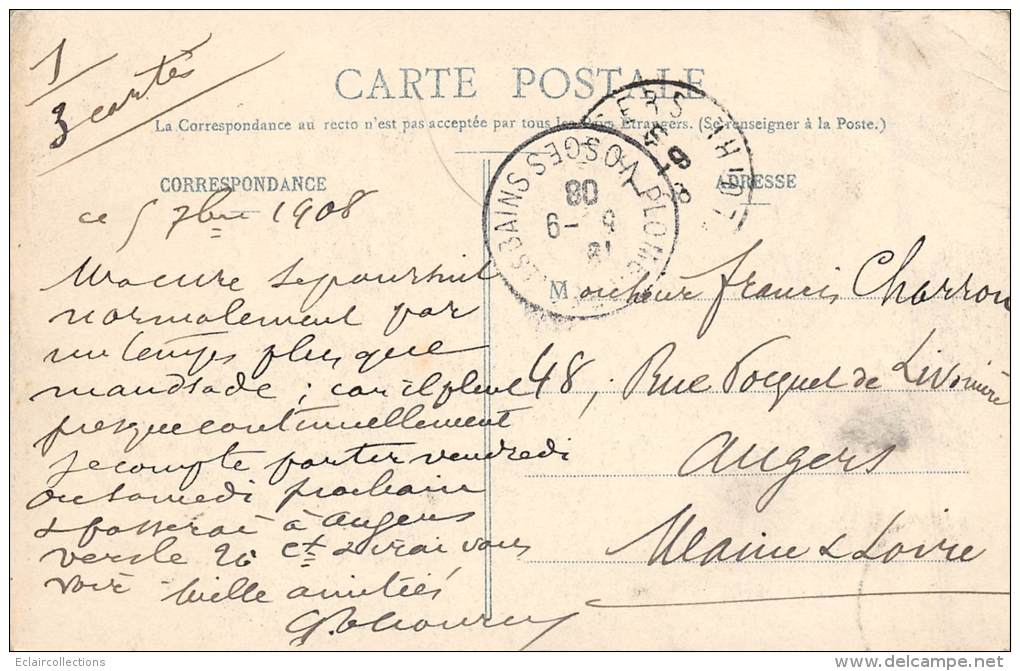 1
3 cartes
CARTE POSTALE
La Correspondance au recto n'est pas acceptée par tous les Pays Étrangers. (Se renseigner à la Poste.)
CORRESPONDANCE
ADRESSE
PLOMB ES BAINS VOSGES
6- 9
08
ce 5 7bre 1908
Ma cure se poursuit
normalement par
un temps plus que
maussade ; car il pleut
presque continuellement
Je compte partir vendredi
ou samedi prochain
& passerai à Angers
vers le 20 ct & irai vous
voir mille amitiés
Monsieur Francis Charron
48, Rue Tocquet de Livonnière
Angers
Maine & Loire
Eclaircollections
delcampe.net